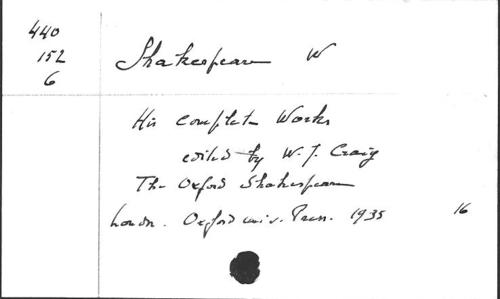 440
152
6
Shakespeare W
His Complete Works
edited by W. J. Craig
The Oxford Shakespeare
London. Oxford univ. Press. 1935 16